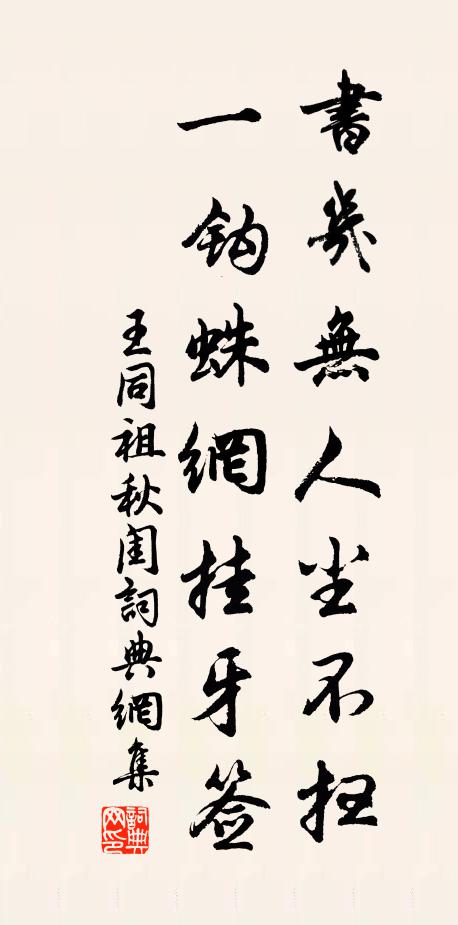 書幾無人尘不扫
一鈎蛛網挂牙签
王同祖秋闺詞典網集
詞典網印